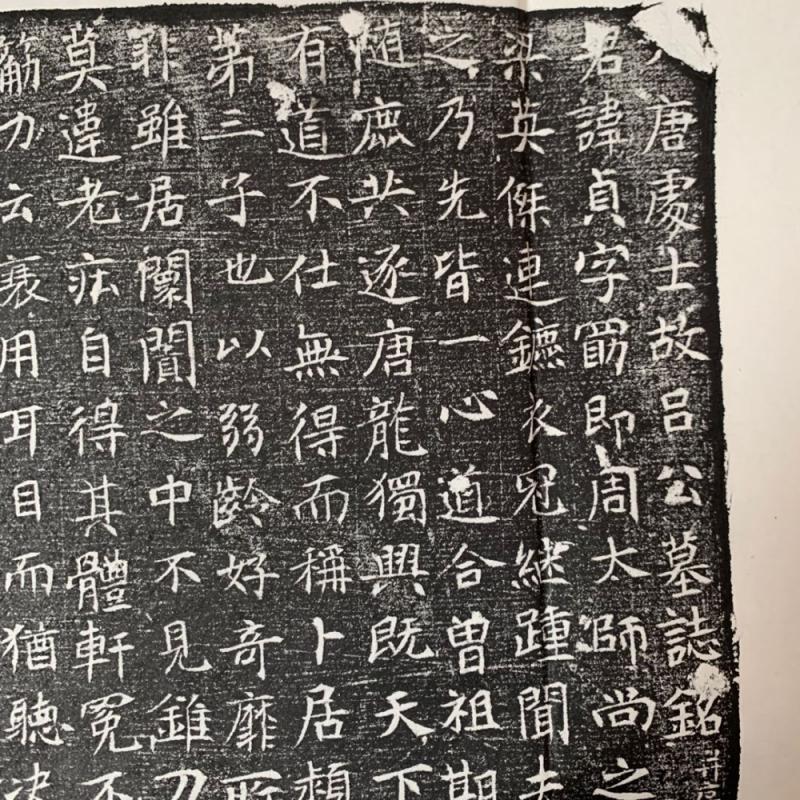 唐處士故吕公墓誌銘并
君諱貞字即周太師尚之
梁英連鑣衣冠継踵聞夫
之乃先皆一心道合曽祖期
随鹿共逐唐龍獨興既天下
有道不仕無得而稱卜居
第三子也以弱齡好奇靡所
非雖居闤闠之中不見錐刀
莫違老疾自得其體軒冕不
筋力云衰用耳目而猶聽决